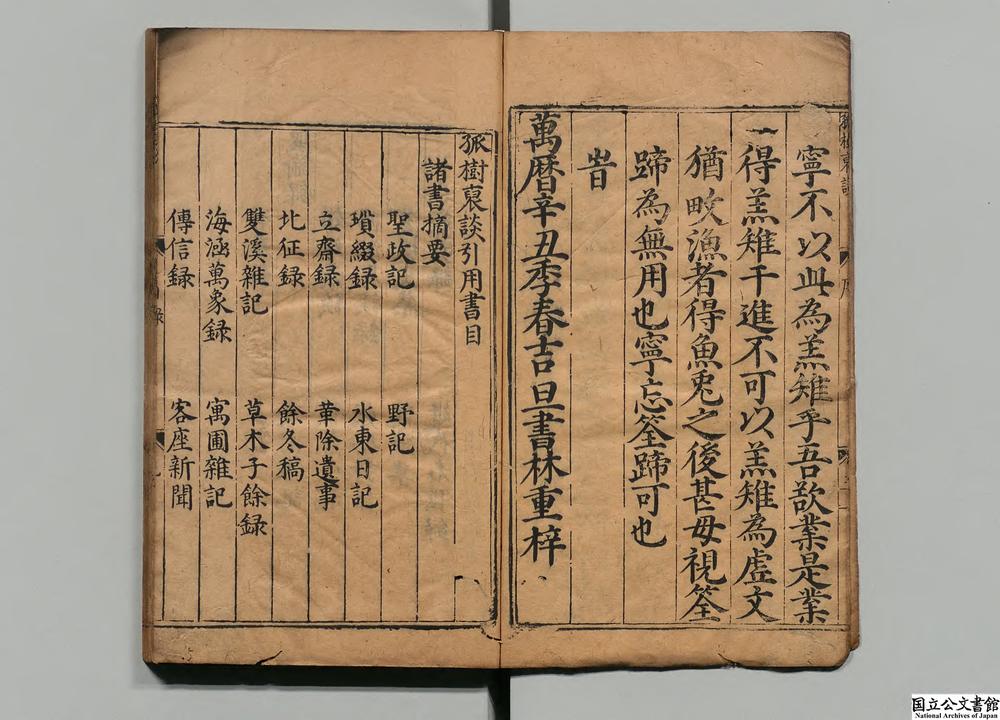 寧不以此為羔雉乎吾欲業是業
一得羔雉干進不可以羔雉為虛文
猶畋漁者得魚兎之後甚毋視筌
蹄為無用也寧忘筌蹄可也
旹
萬曆辛丑季春吉旦書林重梓
狐樹裒談引用書目
諸書摘要
聖政記 野記
瑣綴録 水東日記
立齋録 革除遺事
北征録 餘冬稿
雙溪雜記 草木子餘録
海涵萬象録 寓圃雜記
傳信録 客座新聞
国立公文書館
National Archives of Japan